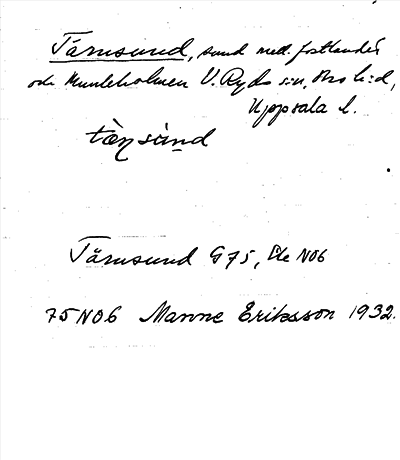 Tärnsund, sund mell. fastlandet
och Munkholmen V. Ryds s:n, Bro h:d,
Uppsala l.
tæɳsùnd
Tärnsund G75, Ble N06
75N06 Manne Eriksson 1932.